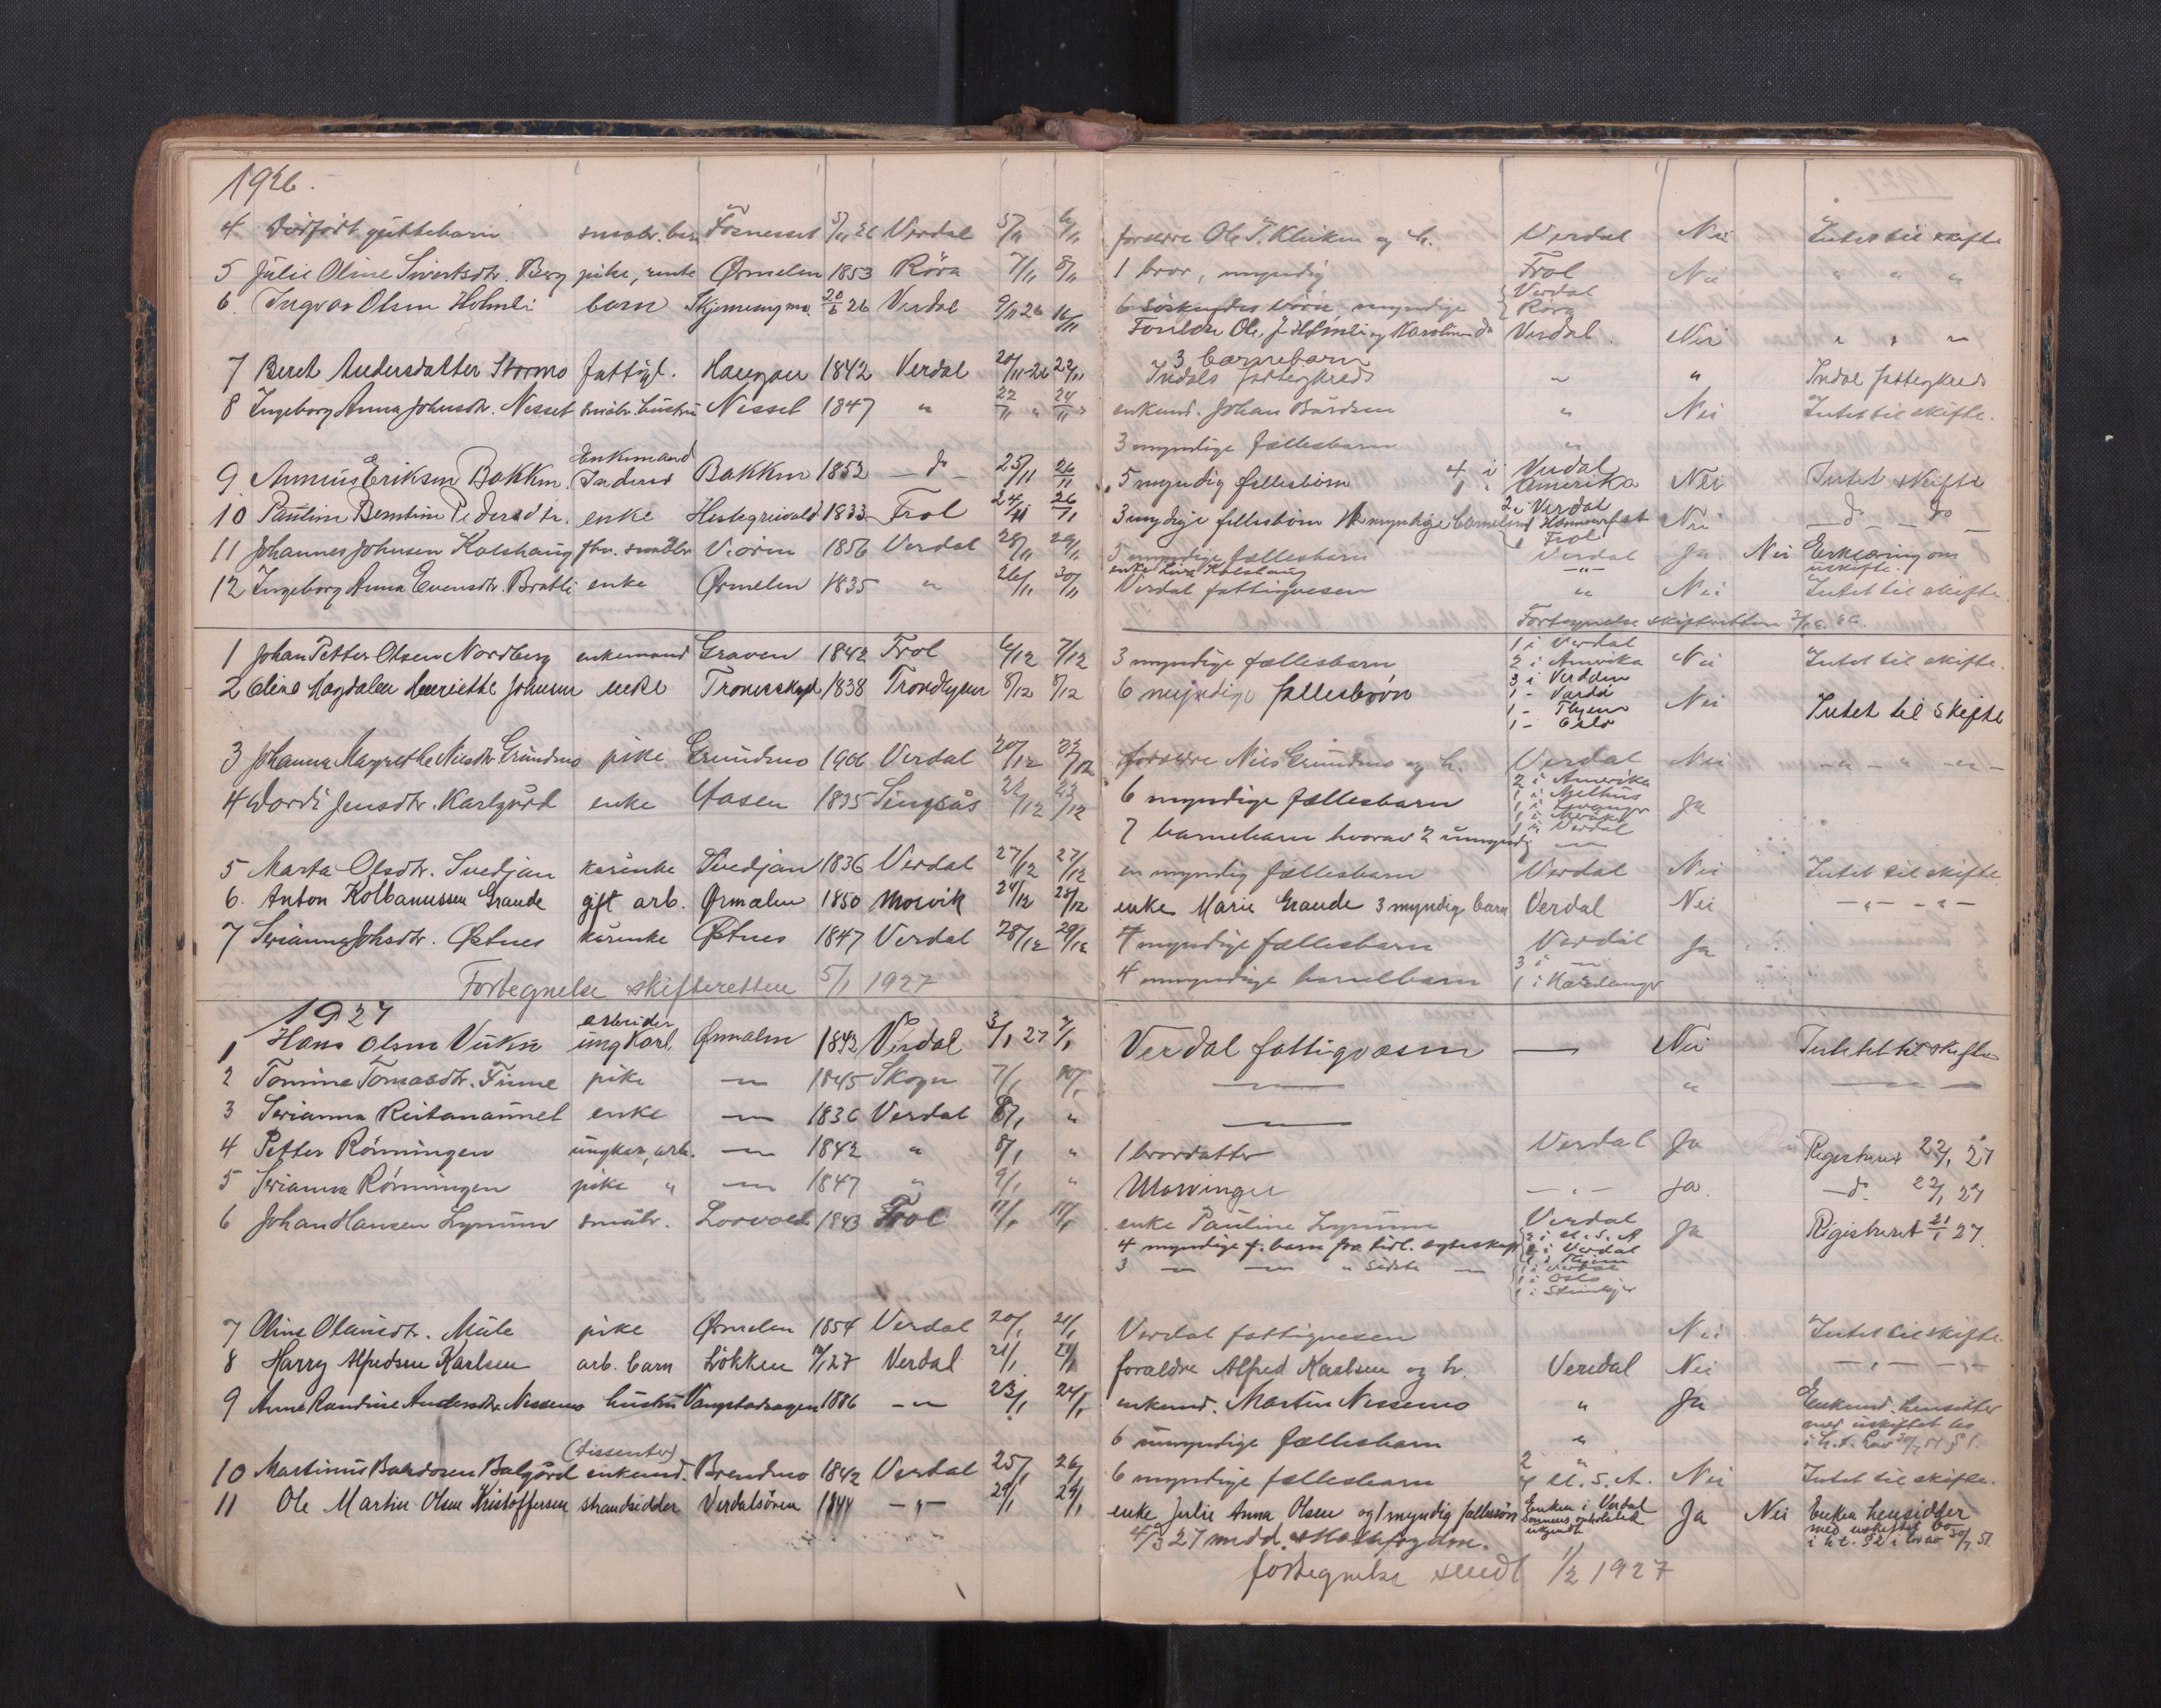 1926.
4 Dødfødt guttebarn småbr. barn Fosnesset 5/11 26 Verdal 5/11 6/11 forældre Ole T. Kluken og h. Verdal Nei Intet til skifte
5 Julie Oline Sivertsdtr. Berg pike, rente Ørmelen 1853 Röra 7/11 8/11 1 bror, myndig Frol Nei " " "
6. Ingvar Olsen Holmli barn 20/6 26 Verdal 9/11 26 16/11 6 myndige Verdal Röra
Forældre Ole J. Holmli og Karoline do Verdal. Nei " " "
7 Beret Andersdatter Stormo fattigl. Haugan 1842 Verdal 20/11-26 22/11 3 barnebarn
Indals fattigkreds " " Indal fattigkreds
8 Ingeborg Anna Johnsdtr. Nesset småbr. hustru Nesset 1847 " 22/11 " 24/11 " enkemd. Johan Bårdsen " Nei Intet til skifte.
3 myndige fællesbarn "
9 Annæus Eriksen Bakken. Enkemand Inderst Bakken 1852 - do - 25/11 26/11 5 myndig fellesbörn 4 i Verdal 1 " Amerika Nei Intet skifte
10 Pauline Berntine Pedersdtr. enke Hestegreivald 1833 Frol 24/11 26/11 3 myndige fellesbörn myndige barnebarn 2 i Verdal Hommerfest Frol Nei - do - do
11 Johannes Johnsen Kolshaug fhv. småbr V.ören 1856 Verdal 28/11 29/11 5 myndige fællesbarn Verdal Ja Nei Erklæring om
enke Kolshaug -"- uskifte.
12 Ingeborg Anna Evensdtr. Bratli enke Ørmelen 1835 " 26/11 30/11 Verdal fattigvesen " Nei Intet til skifte
Fortegnelse skifteretten
1 Johan Petter Olsen Nordberg enkemand Graven 1842 Frol 6/12 7/12 3 myndige fællesbarn 1 i Verdal 2 i Amerika Nei Intet til skifte.
2 Oline Magdalen Henriette Johnsen enke 1838 Trondhjem 8/12 8/12 6 myndige fællesbørn 3 i Verdalen 1 - Vardø 1 - Thjem 1 - Oslo Nei Intet til skifte
3 Johanna Margrethe Nilsdtr Grundmo pike Grundmo 1906 Verdal 20/12 23/12 forældre Nils Grundmo og h. Verdal Nei - " - " - " -
4 Dordi Jensdtr. Karlgård enke Aasen 1835 Singsås 22/12 23/12 6 myndige fællesbarn 2 i Amerika 1 i Melhus 1 i Levanger 1 i Meråker 1 i Verdal Ja
7 barnebarn hvorav 2 umyndig
5 Marta Olsdtr. Svedjan kårenke Svedjan 1836 Verdal 27/12 27/12 en myndig fællesbarn Verdal Nei Intet til skifte
6. Anton Kolbanussen Grande gift arb. Ørmelen 1850 Mosvik 24/12 28/12 enke Marie Grande 3 myndig barn Verdal Nei - " - - " -
7 Serianna Johsdtr. Østnes kårenke Østnes 1847 Verdal 28/12 29/12 4 myndige fællesbarn Verdal Ja
4 umyndige barnebarn 3 i " 1 i
Fortegnelse skifteretten 5/1 1927
1927
1 Hans Olsen Vuku arbeider ungkarl Ørmelen 1842 Verdal 3/1 27 7/1 Verdal fattigvæsen — Nei Intet til skifte
2 Tomine Tomasdtr. Finne pike — " — 1845 Skogn 7/1 10/1 — " — " — " —
3 Serianna Reitanaunet enke — " — 1836 Verdal 8/1 " — " —
4 Petter Rönningen ungkar, arb. — " — 1842 " 8/1 " 1 brordatter Verdal Ja Registreret 22/1 27
5 Serianna Rönningen pike " — " — 1847 " 9/1 " Utarvinger — " — Ja. — do. 22/1 27
6 Johan Hansen Lynum småbr. Lorvold 1843 Frol 11/1 17/1 enke Pauline Lynum Verdal Ja Registreret 21/1 27.
4 myndige f. barn fra tidl. egteskap 2 i U.S.A 2 i Verdal
3 — " — — " — " sidste — " — 1 i Verdal 1 i Oslo 1 i Stenkjer
7 Oline Olausdtr. Mule pike Ørmelen 1854 Verdal 20/1 21/1 Verdal fattigvesen Nei Intet til skifte
8 Harry Alfredsen Karlsen arb. barn Lökken 27 Verdal 21/1 24/1 foraldre Alfred Karlsen og h. Verdal Nei — " — — " —
9 Anne Randine Andersdtr. Nessemo hustru 1886 — " — 23/1 24/1 enkemd. Martin Nessemo " Ja Enkemd. hensitter
med uskiftet bo
6 umyndige fællesbarn " i h.t. Lov 30/7 51 § 1.
10 Martinus Bardosen Balgård (dissenter) enkemd. Brendmo 1842 Verdal 25/1 26/1 6 myndige fællesbarn 2 " 4 U.S.A. Nei Intet til skifte.
11 Ole Martin Olsen Kristoffersen strandsidder Verdalsören 1844 — " — 29/1 29/1 enke Julie Anna Olsen og 1 myndig fællessön Enken i Verdal Sönnens opholdsted ukjendt Ja Nei Enken hensidder
med uskiftet bo
i h.t. § 2 i lov av 30/7 51.
4/3 27 medd.
fortegnelse sendt 1/2 1927